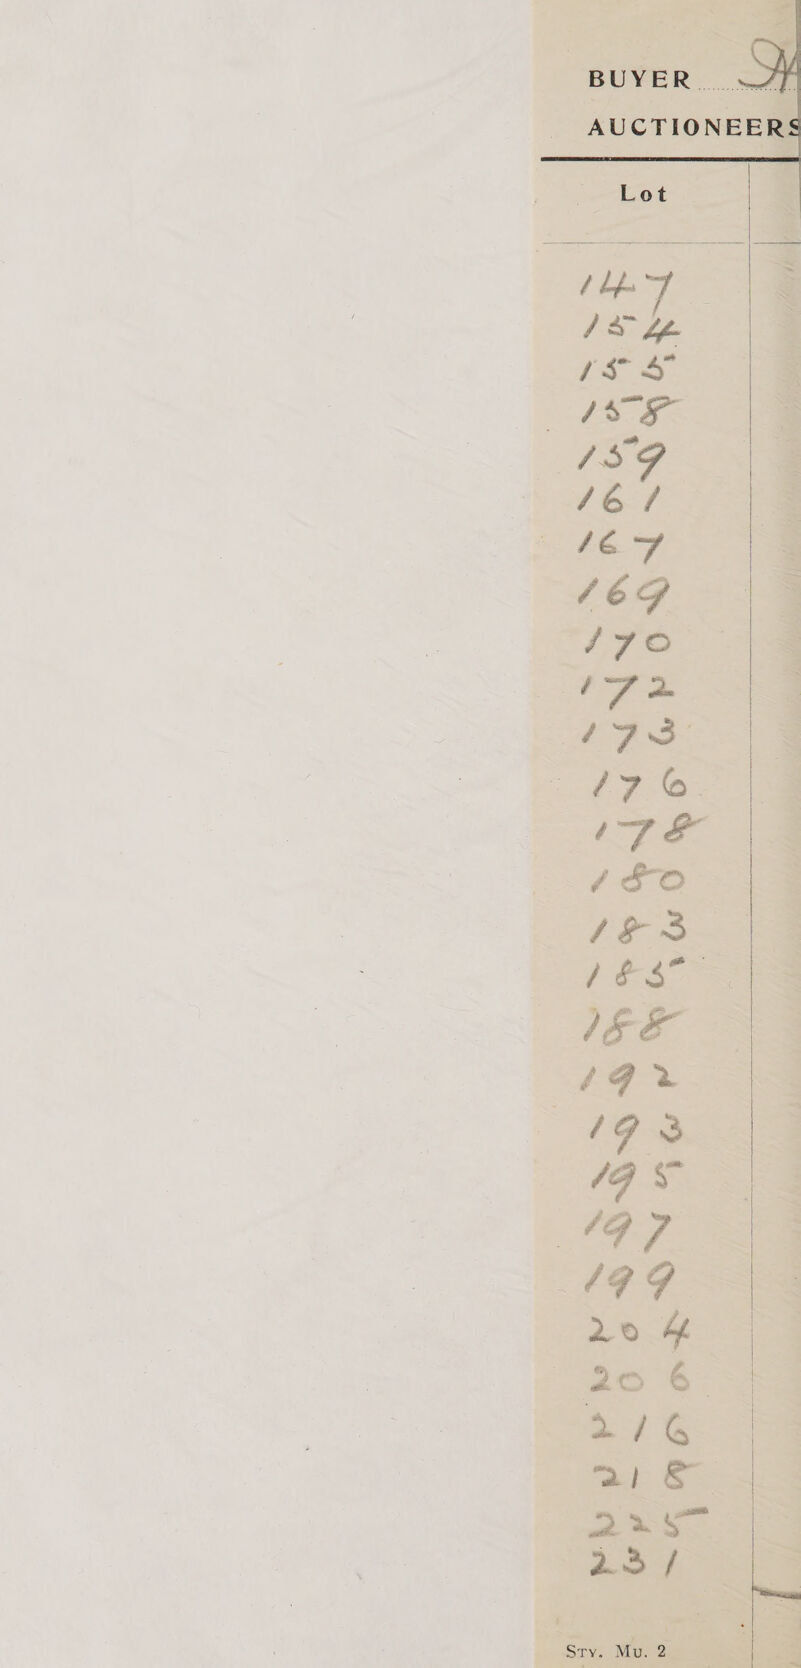 BUYER
AUCTIONEERS
Lot
147
154
155
158
159
161
167
169
170
172
173
176
178
180
183
185
188
192
193
195
197
199
204
206
216
218
225
231
Sty. Mu. 2